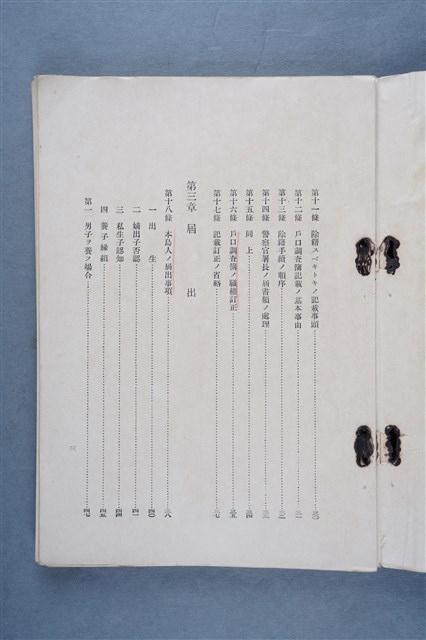 第十一條 除籍スベキトキノ記載事項
第十二條 戶口調査簿記載ノ基本事由
第十三條 除籍手續ノ順序
第十四條 警察官署長ノ屆書類ノ處理
第十五條 同上
第十六條 戶口調査簿ノ職權訂正
第十七條 記載訂正ノ省略
第三章 屆出
第十八條 本島人ノ屆出事項
一 出生 四〇
二 嫡出子否認 四一
三 私生子認知 四四
四 養子緣組 四五
第一 男子ヲ養フ場合 四七